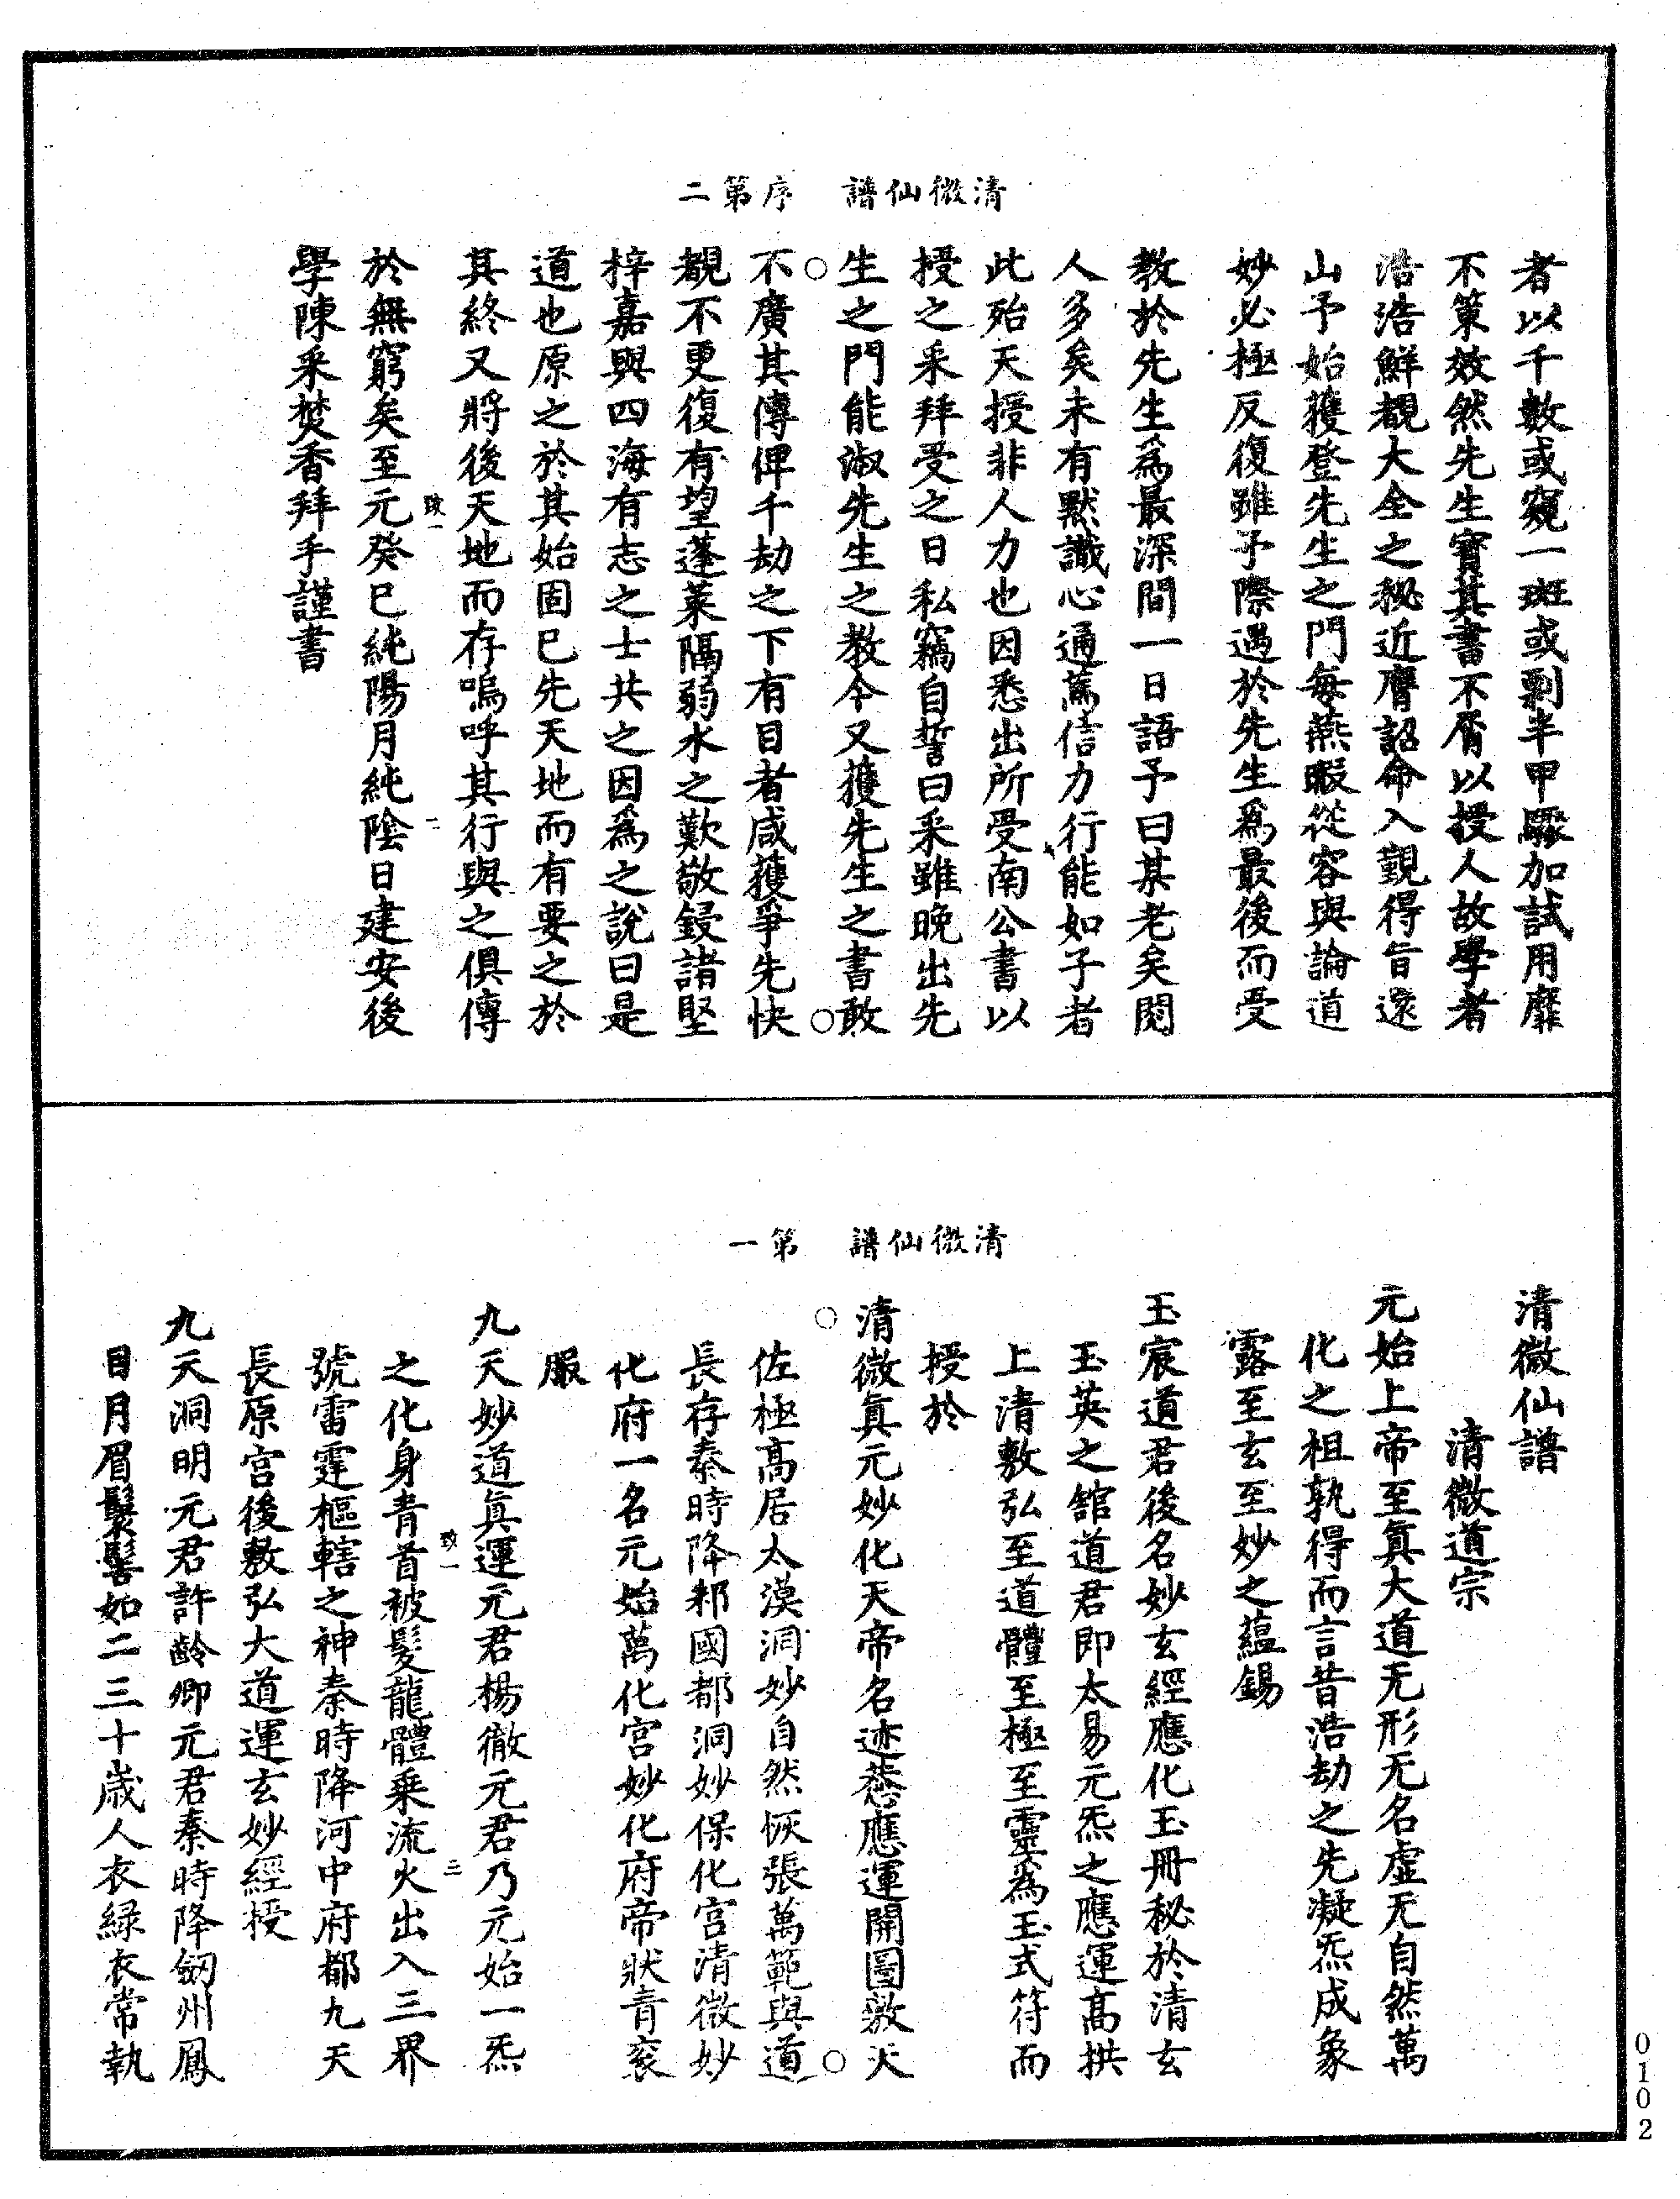 清微仙譜　序第二
者以千數或窺一斑或剽半甲驟加試用靡
不策效然先生寶其書不屑以授人故學者
浩浩鮮覩大全之秘近膺詔命入覲得旨還
山予始獲登先生之門每燕暇從容與論道
妙必極反復雖予際遇於先生爲最後而受
教於先生爲最深間一日語予曰某老矣閱
人多矣未有默識心通篤信力行能如子者
此殆天授非人力也因悉出所受南公書以
授之采拜受之日私竊自誓曰采雖晚出先
生之門能淑先生之教今又獲先生之書敢
不廣其傳俾千劫之下有目者咸獲爭先快
覩不更復有望蓬萊隔弱水之歎敬鋟諸堅
梓嘉與四海有志之士共之因爲之說曰是
道也原之於其始固已先天地而有要之於
其終又將後天地而存嗚呼其行與之俱傳
致一　二
於無窮矣至元癸巳純陽月純陰日建安後
學陳采焚香拜手謹書
清微仙譜　第一
清微仙譜
清微道宗
元始上帝至眞大道无形无名虛无自然萬
化之祖孰得而言昔浩劫之先凝炁成象
露至玄至妙之蘊錫
玉宸道君後名妙玄經應化玉冊秘於清玄
玉英之館道君即太易元炁之應運高拱
上清敷弘至道體至極至靈爲玉式符而
授於
清微眞元妙化天帝名迹莶應運開圖敷天
佐極高居太漠洞妙自然恢張萬範與道
長存秦時降邾國都洞妙保化宮清微妙
化府一名元始萬化宮妙化府帝狀青衮
服
九天妙道眞運元君楊徹元君乃元始一炁
致一　三
之化身青首被髮龍體乘流火出入三界
號雷霆樞轄之神秦時降河中府都九天
長原宮後敷弘大道運玄妙經授
九天洞明元君許齡卿元君秦時降劒州鳳
目月眉鬟髻如二三十歲人衣緑衣常執
0102